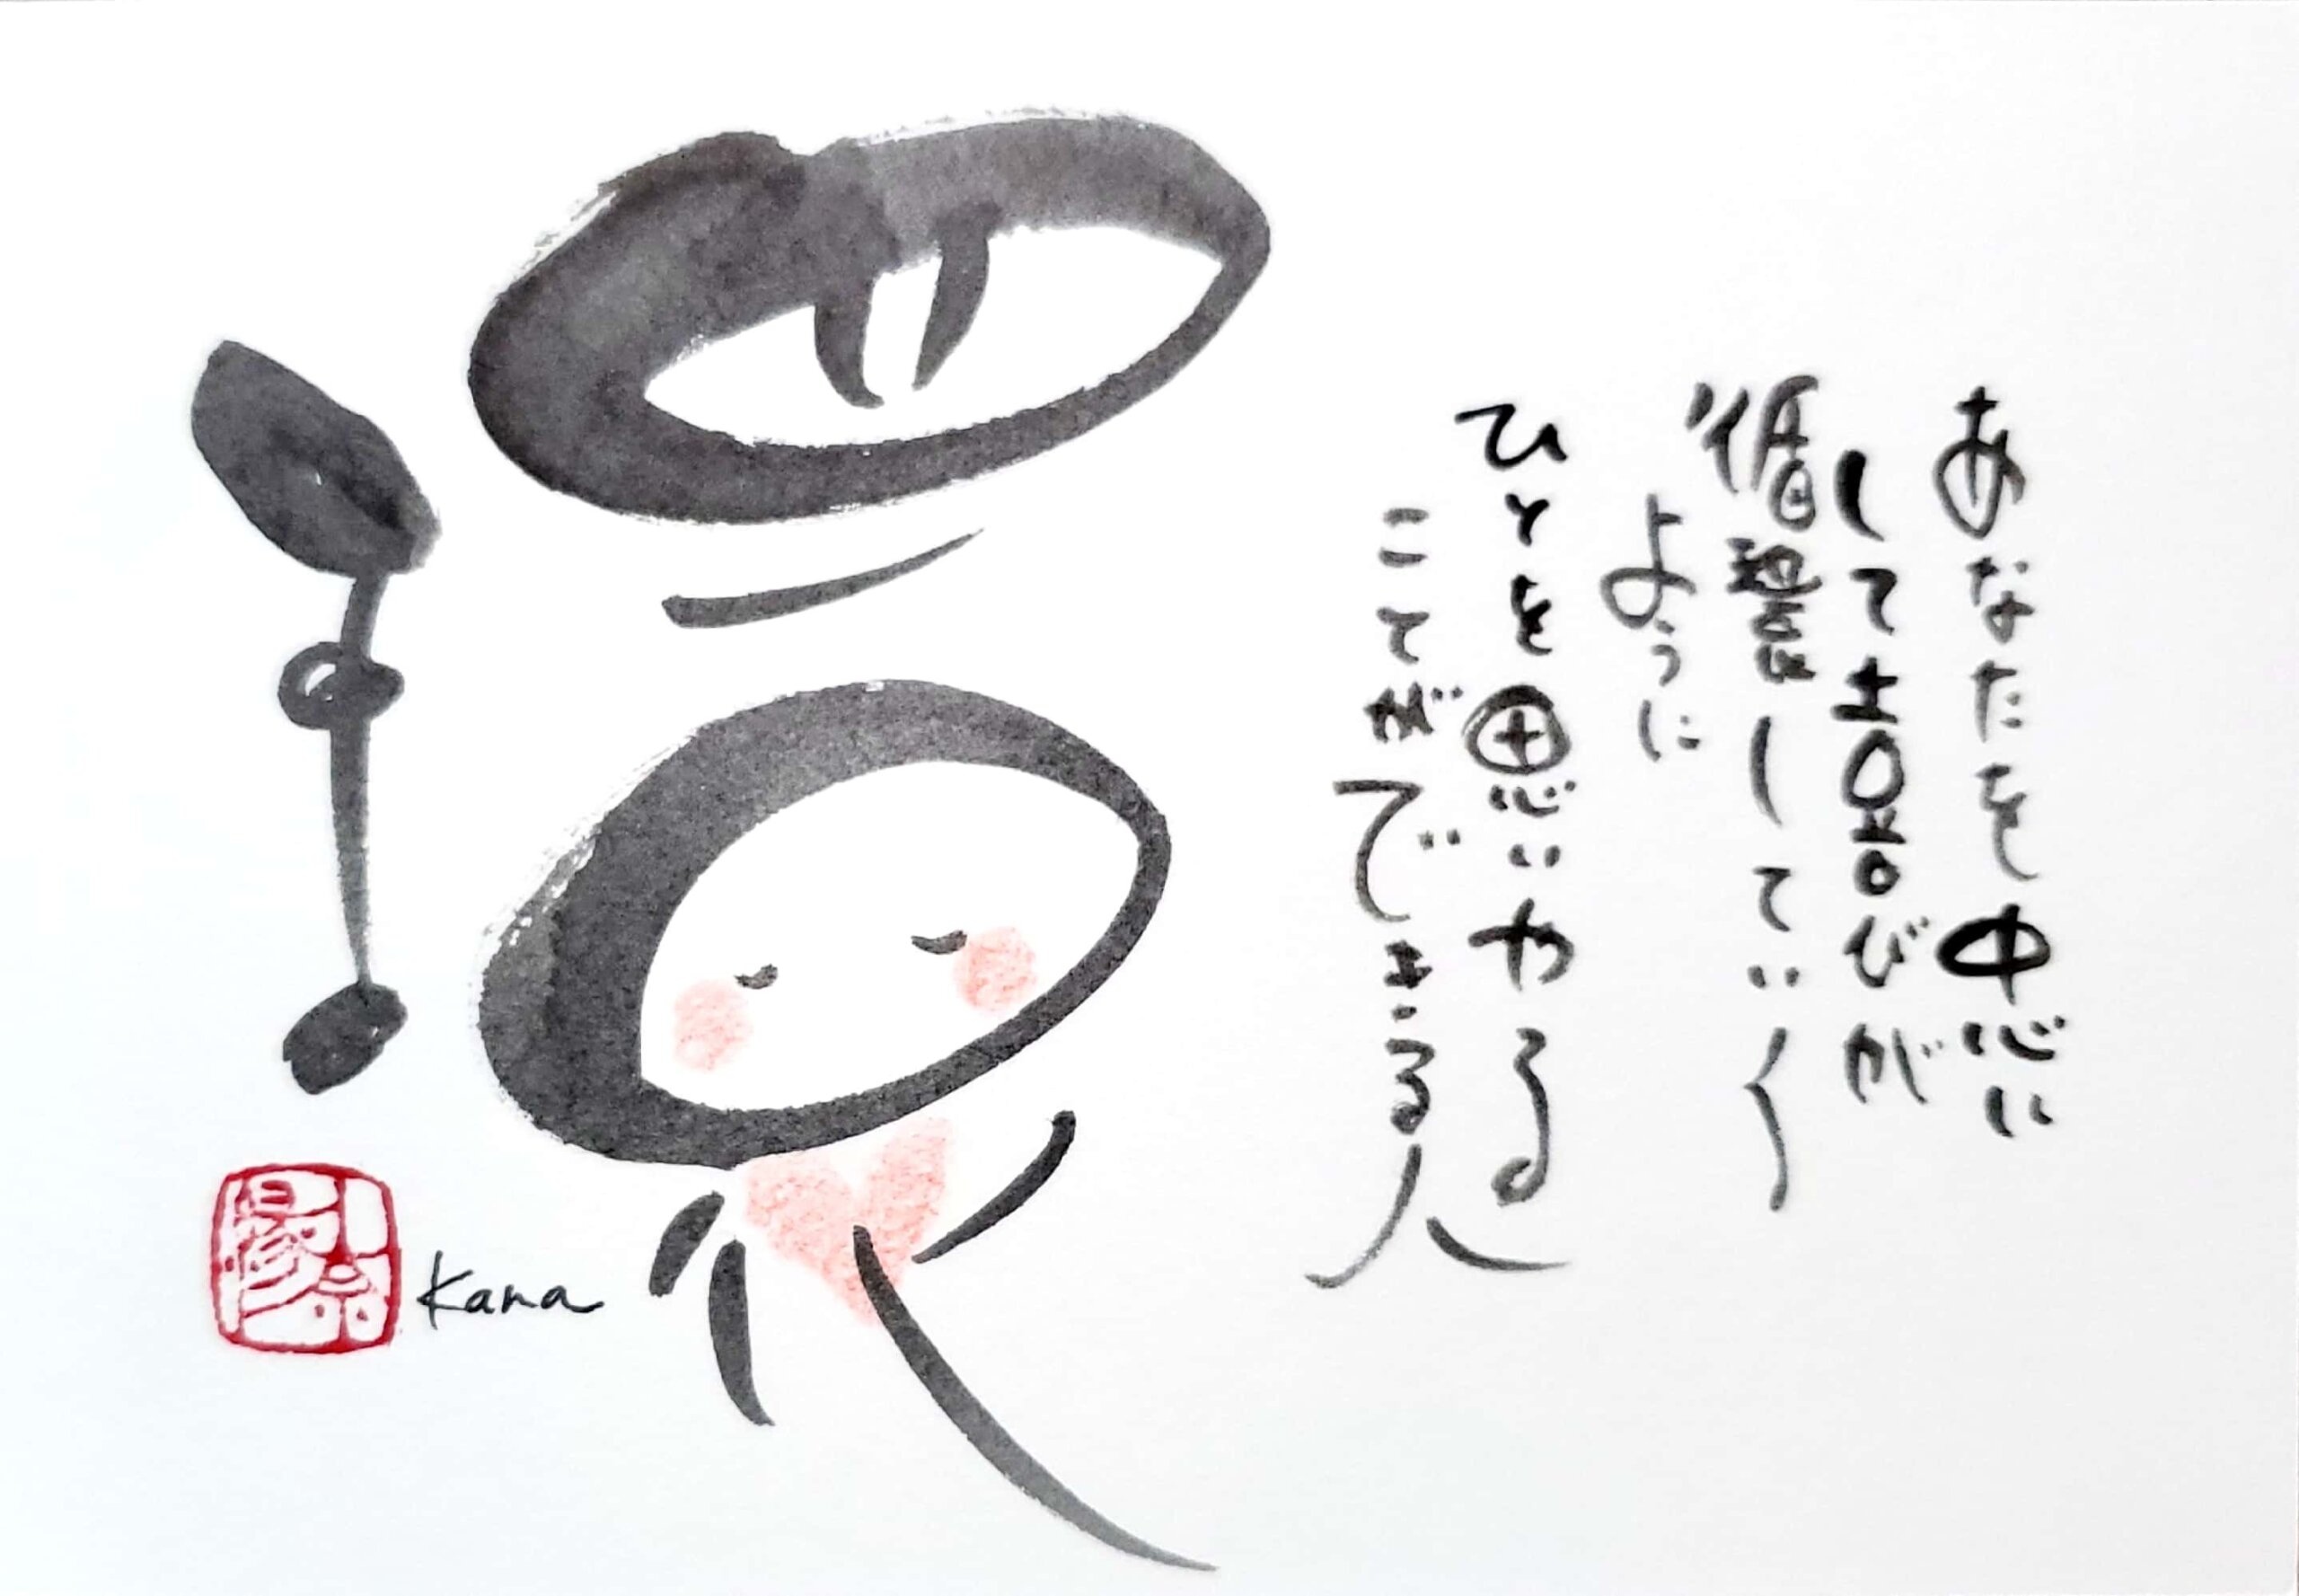 あなたを中心に
して喜びが
循環していく
ように
ひとを思いやる
ことができる人
環
Kana